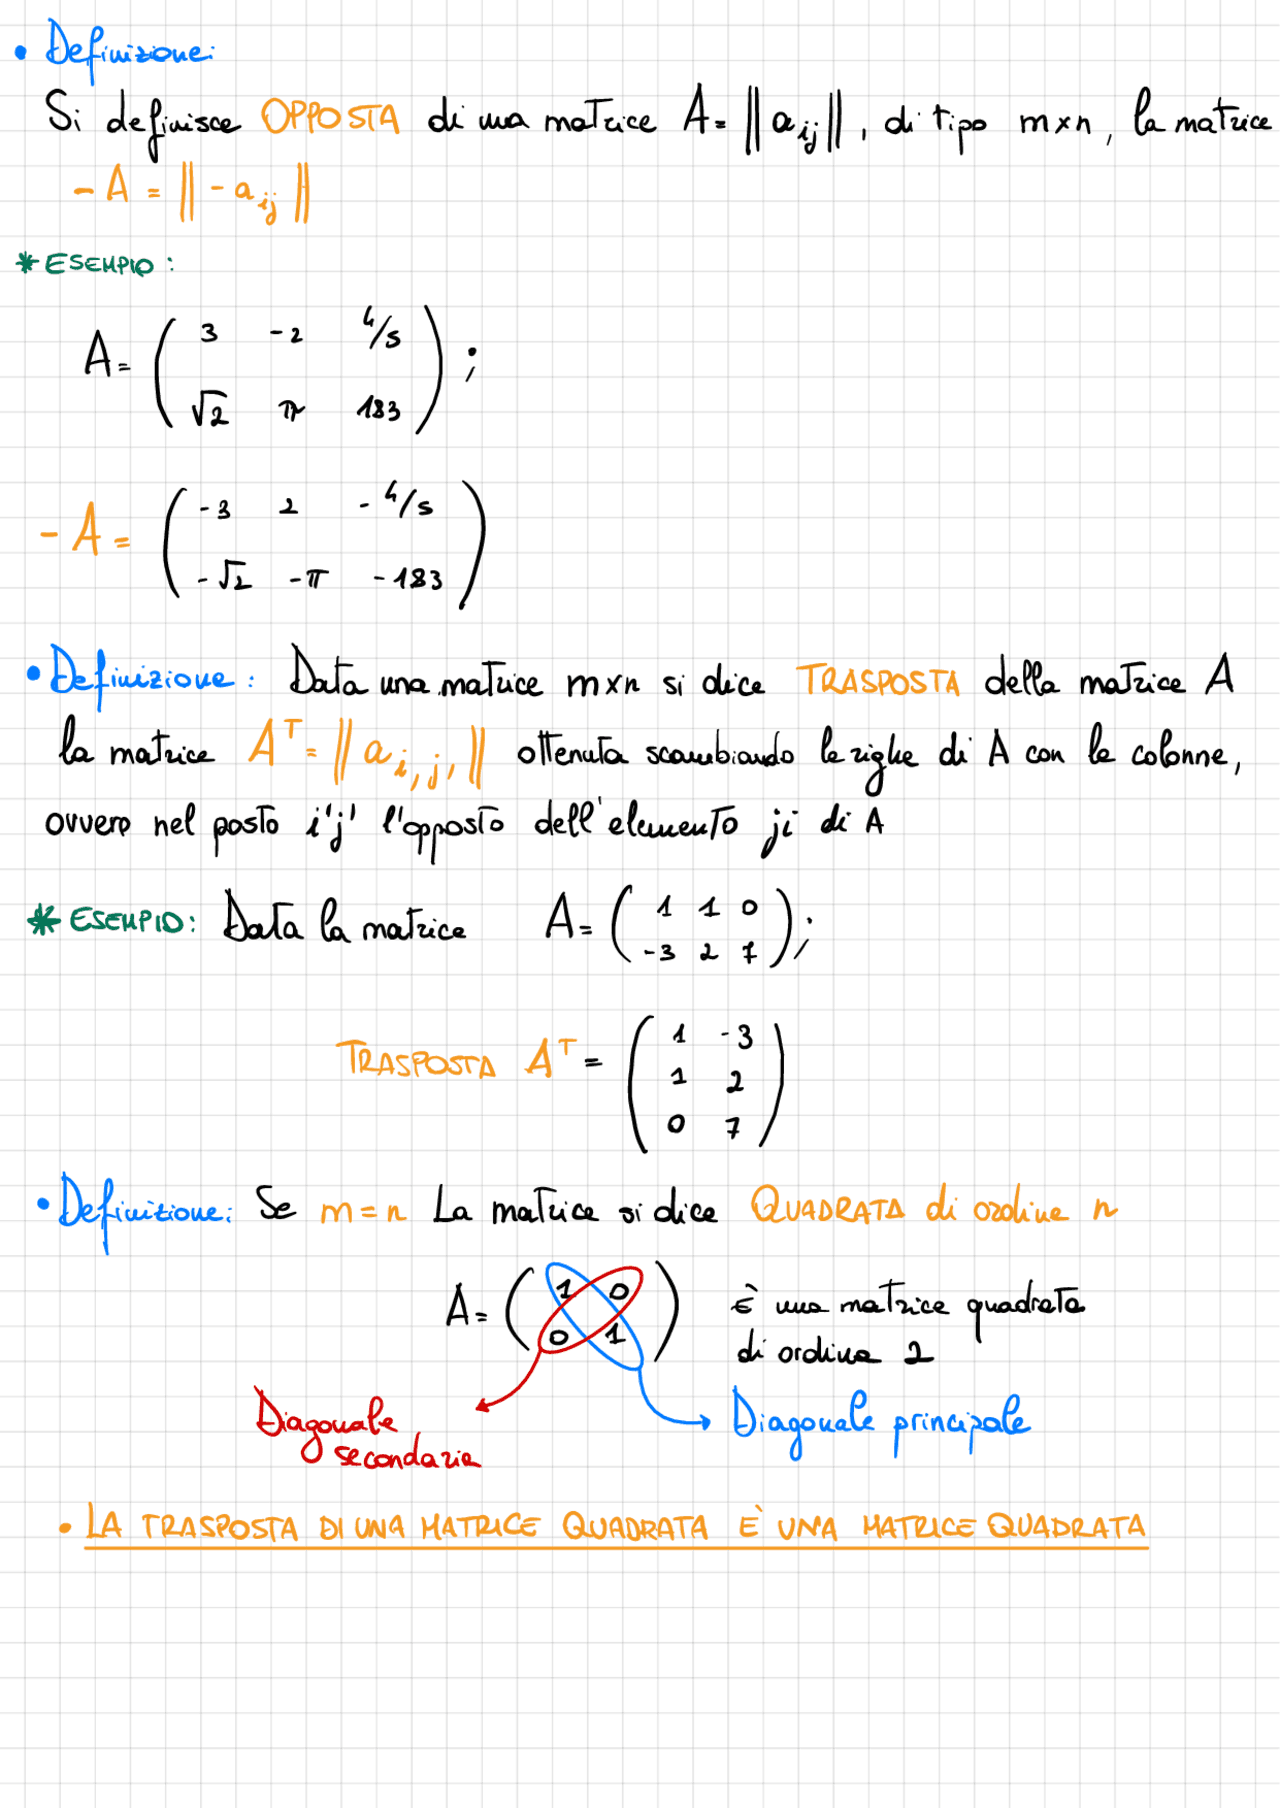 • Definizione:
Si definisce OPPOSTA di una matrice A = || a ij ||, di tipo m×n, la matrice
- A = || - a ij ||
* ESEMPIO:
A = ( 3 -2 4/5
√2 π 183 ) ;
- A = ( -3 2 - 4/5
-√2 -π -183 )
• Definizione: Data una matrice m×n si dice TRASPOSTA della matrice A
la matrice A^T = || a i'j' || ottenuta scambiando le righe di A con le colonne,
ovvero nel posto i'j' l'opposto dell'elemento ji di A
* ESEMPIO: Data la matrice A = ( 1 1 0
-3 2 7 ) ;
TRASPOSTA A^T = ( 1 -3
1 2
0 7 )
• Definizione: Se m=n La matrice si dice QUADRATA di ordine n
A = ( 1 0
0 1 )
È una matrice quadrata
di ordine 2
Diagonale
secondaria
Diagonale principale
• LA TRASPOSTA DI UNA MATRICE QUADRATA È UNA MATRICE QUADRATA